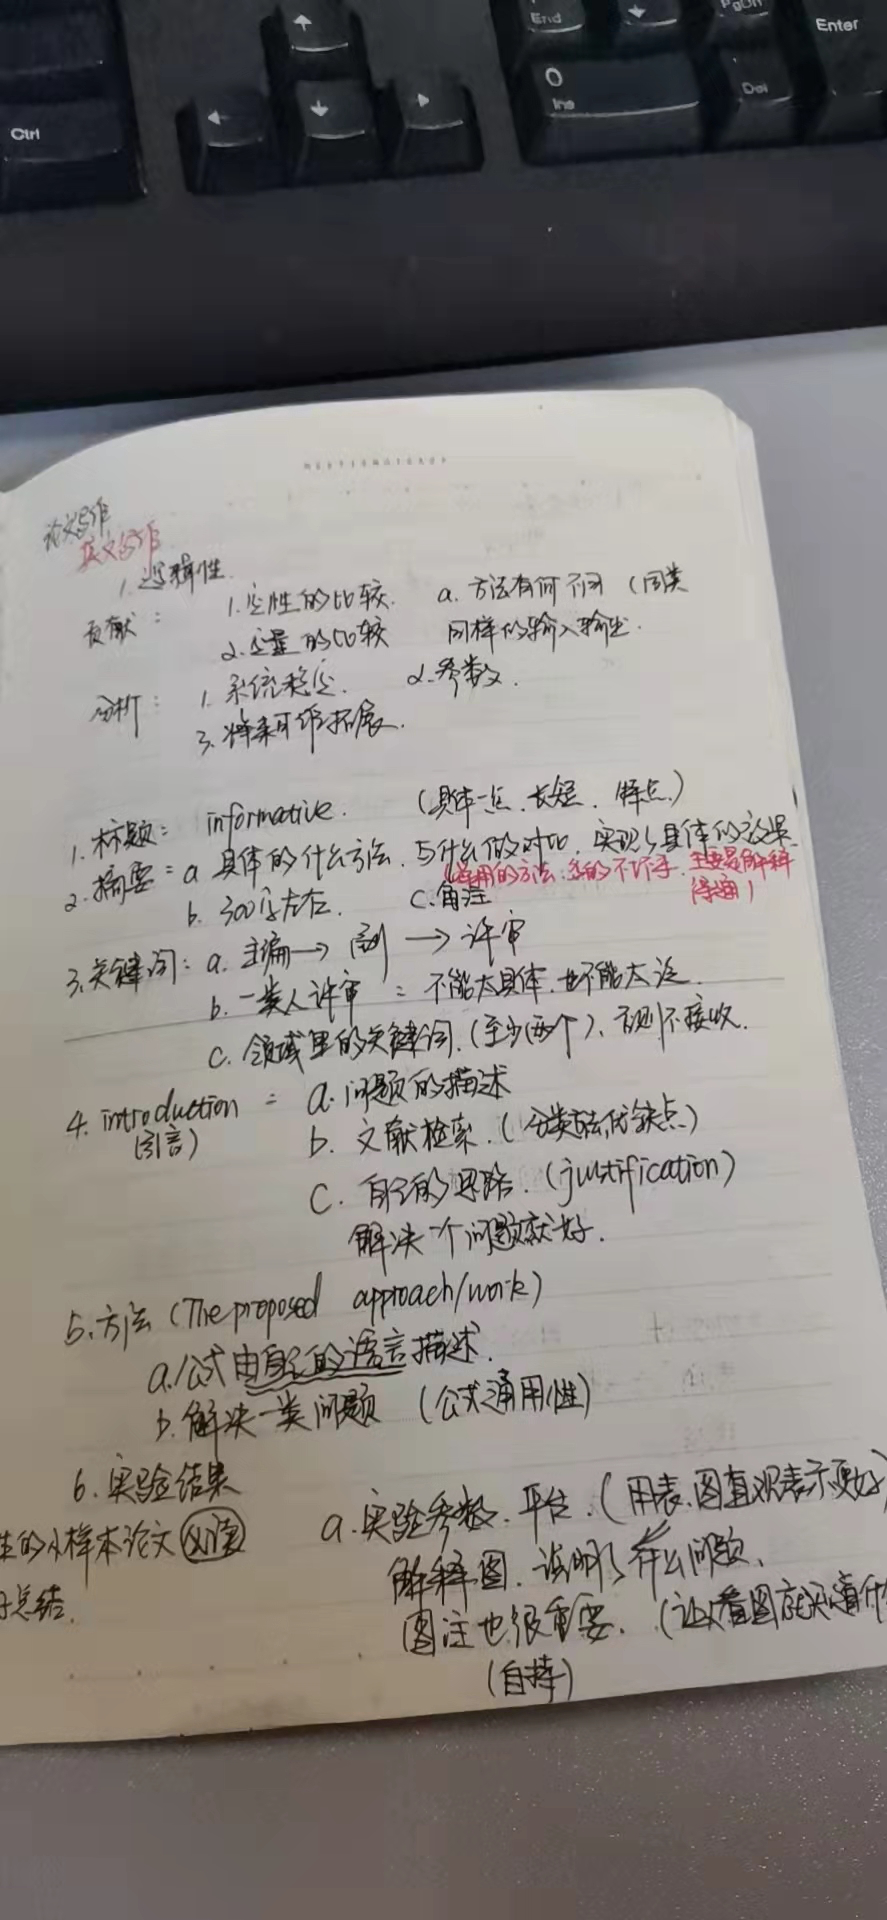 End
PgDn
Enter
0
Ins
Del
Ctrl
论文写作
英文写作
1. 逻辑性.
贡献: 1. 定性的比较. a. 方法有何不同 (同类
2. 定量的比较 同样的输入输出.
分析: 1. 系统稳定. 2. 参数.
3. 将来可作拓展.
1. 标题: informative. (具体一点. 长短. 特点.)
2. 摘要: a 具体的什么方法. 与什么做对比, 实现了具体的效果.
b. 300字左右. c. 备注
主要是解释
得通)
3. 关键词: a. 主编 → 副 → 评审
b. 一类人评审 = 不能太具体. 也不能太泛.
c. 领域里的关键词. (至少(两个), 否则不接收.
4. introduction = a. 问题的描述
(引言) b. 文献检索. (分类 优缺点)
c. 自己的思路. (justification)
解决一个问题就好.
5. 方法 (The proposed approach/work)
a. 公式由自己的语言描述.
b. 解决一类问题 (公式通用性)
6. 实验结果
的小样本论文 必读
总结.
a. 实验参数. 平台. (用表. 图直观表示更好)
解释图. 说明了什么问题.
图注也很重要. (让人看图就知道什